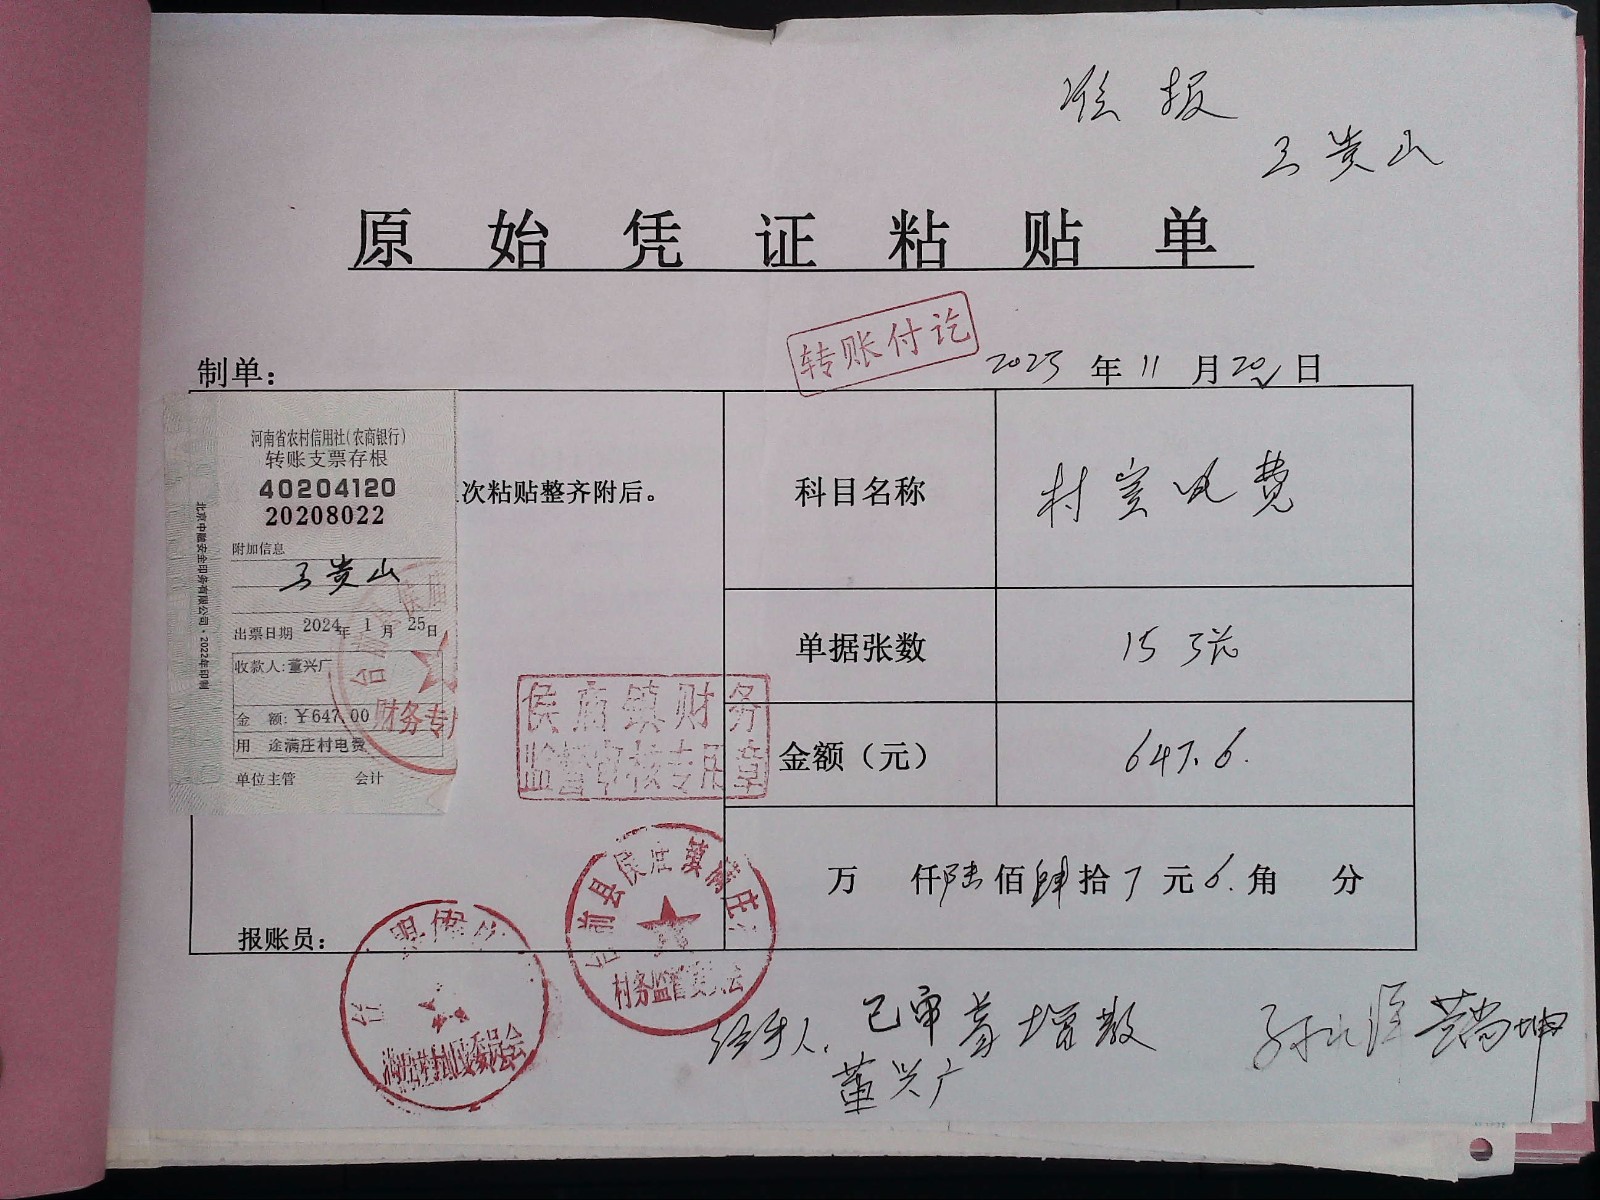 准报
王贵山
原始凭证粘贴单
转账付讫
制单：
2023年11月20日
河南省农村信用社（农商银行）
转账支票存根
40204120
20208022
附加信息
王贵山
出票日期 2024年1月25日
收款人:董兴广
金 额:￥647.00
用 途满庄村电费
单位主管 会计
北京中融安全印务有限公司·2022年印制
财务专用
次粘贴整齐附后。
科目名称 村室电费
单据张数 15张
金额（元） 647.6.
万 仟陆佰肆拾7元6.角 分
侯庙镇财务
监督审核专用章
报账员：
台前县侯庙镇满庄
村务监督委员会
满庄村村民委员会
经手人.
已审
董兴广